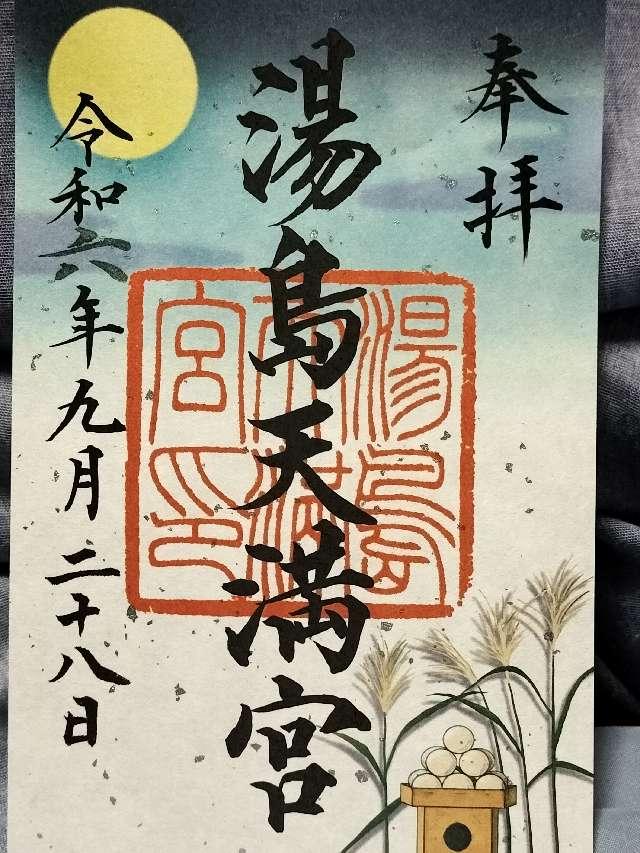 奉拝
湯島天満宮
湯島
天満
宮印
令和六年九月二十八日